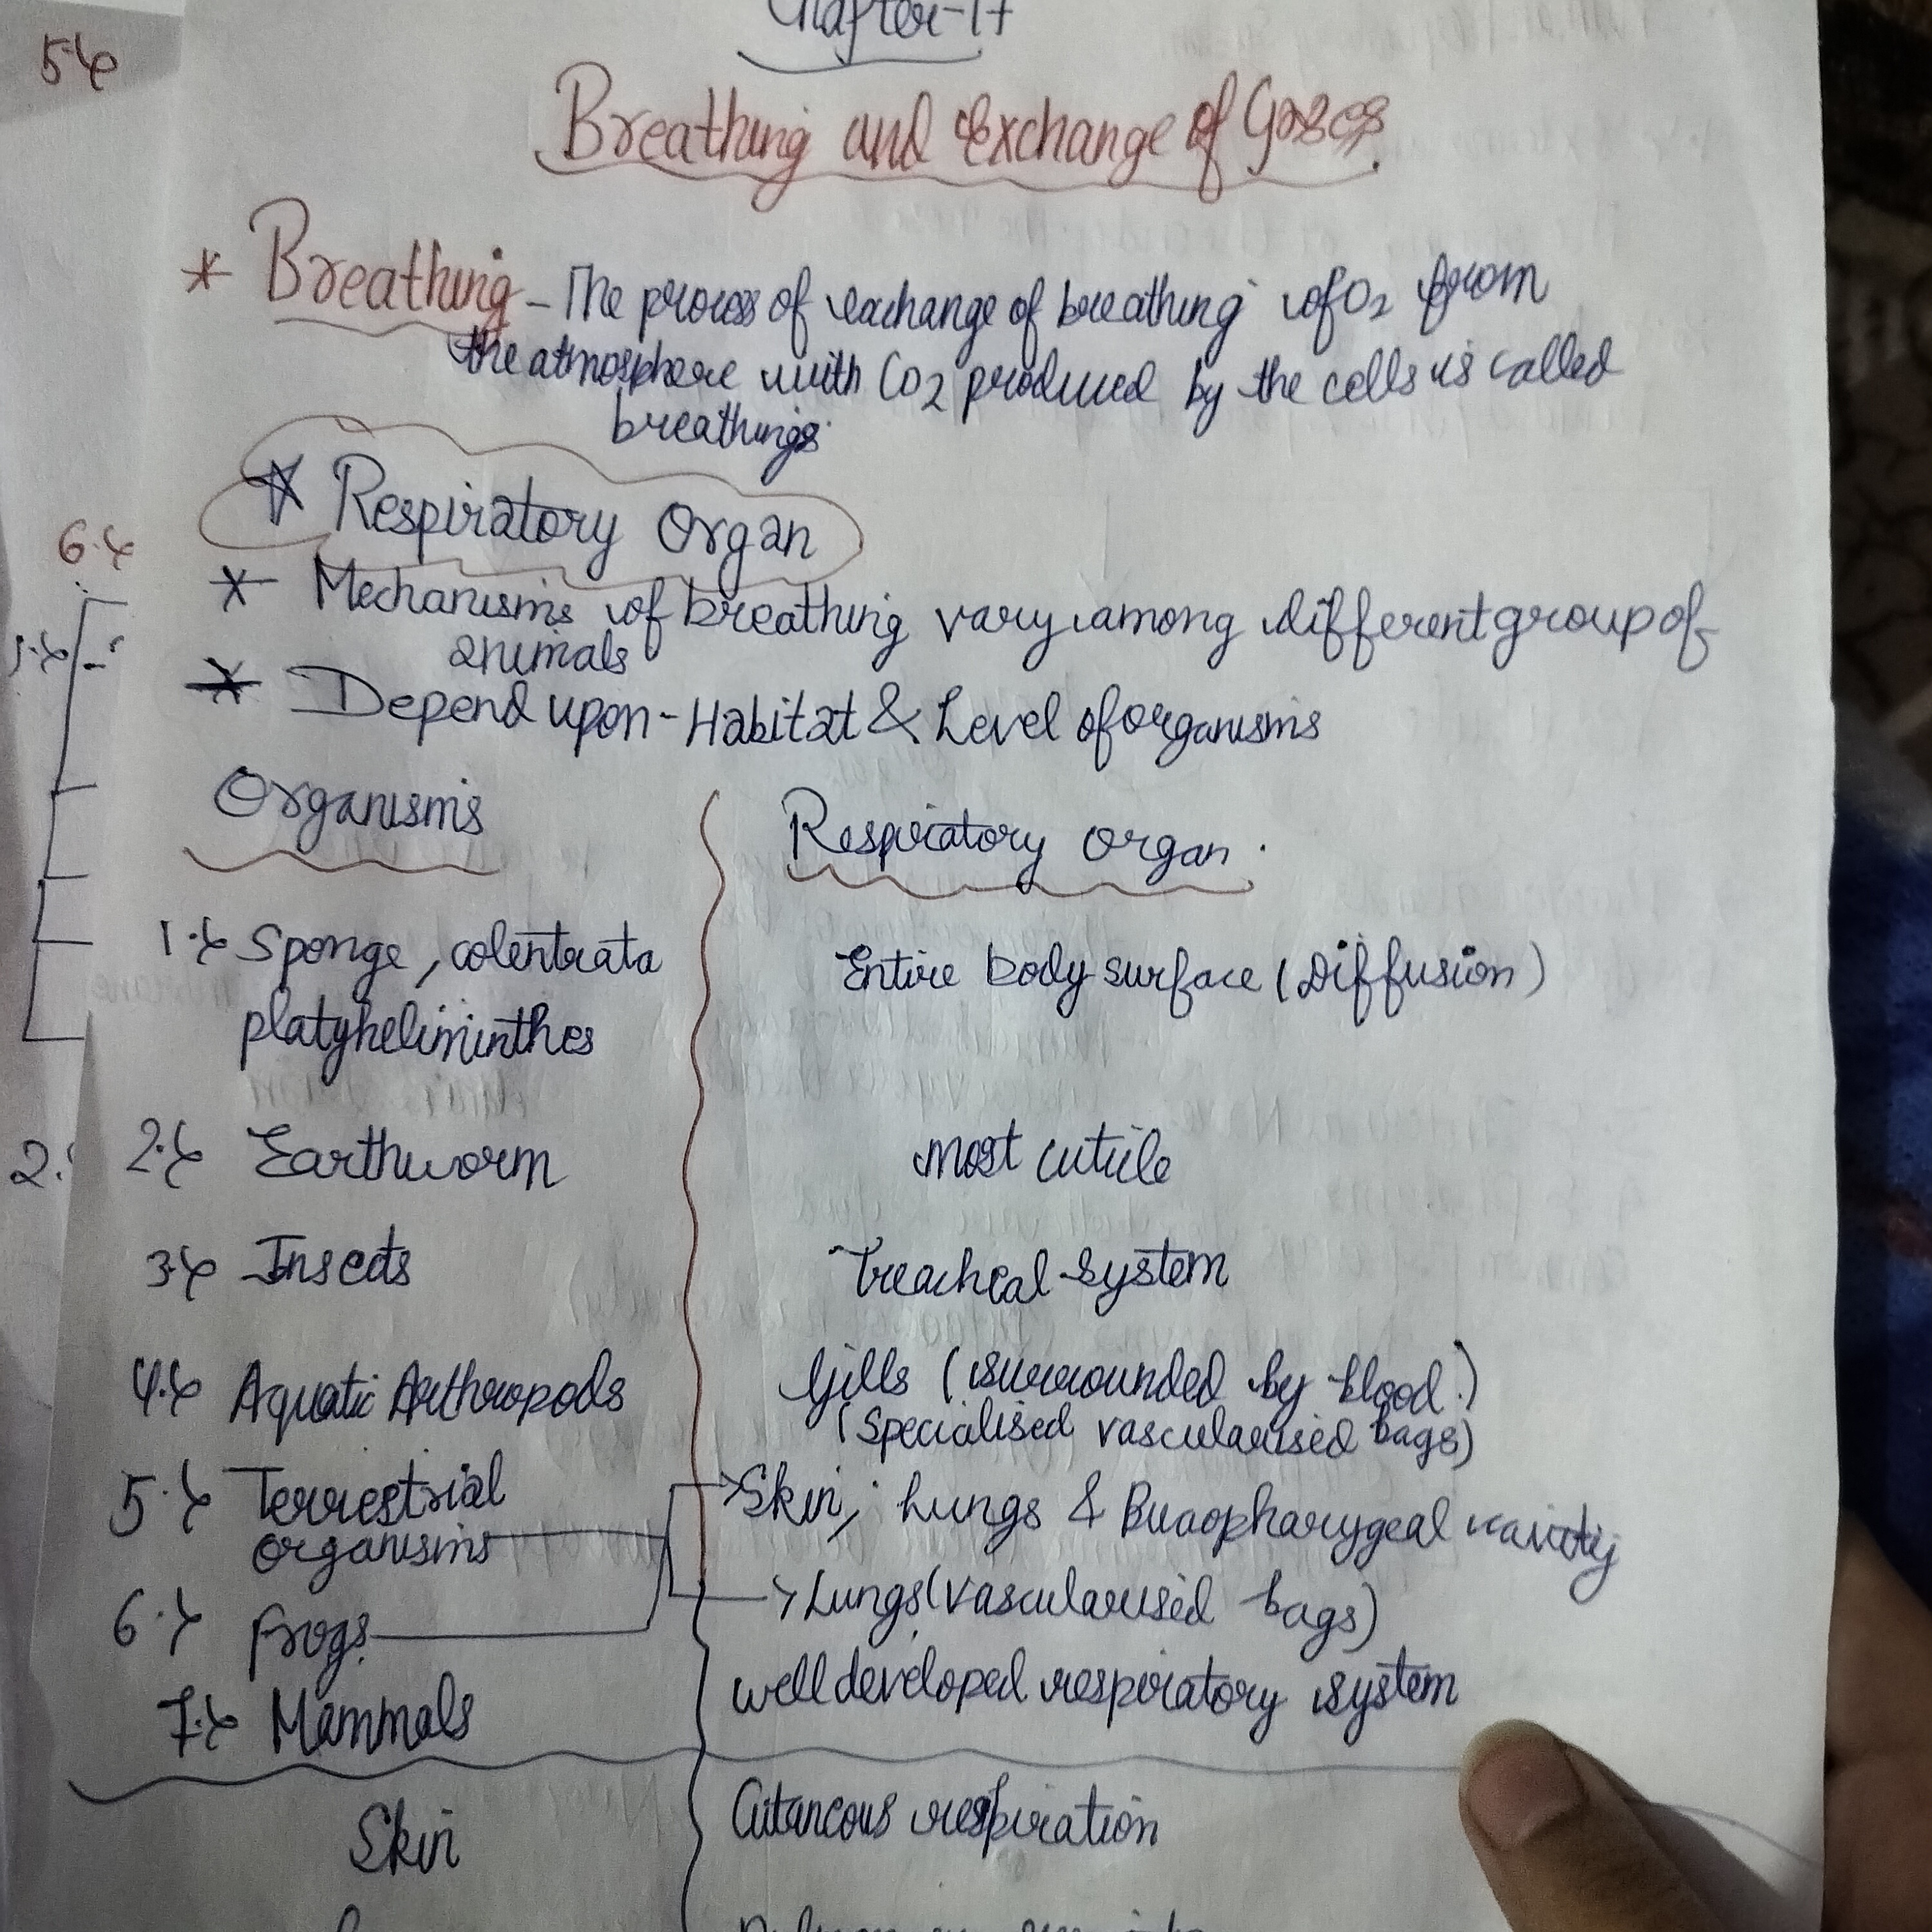 Chapter-17
Breathing and Exchange of Gases.
* Breathing - The process of exchange of breathing of O2 from
the atmosphere with CO2 produced by the cells is called
breathings.
Respiratory Organ
* Mechanisms of breathing vary among different group of
animals
* Depend upon - Habitat & Level of organisms
Organisms
Respiratory organ.
1. Sponge, colentrata
platyheliminthes
Entire body surface (Diffusion)
2. Earthworm
most cuticle
3. Insects
Treacheal system
4. Aquatic Arthropods
Gills (surrounded by blood.)
(Specialised vascularised bags)
5. Terrestrial
organisms
Skin, Lungs & Bucopharygeal cavity
6. frogs.
Lungs (vascularised bags)
7. Mammals
well developed respiratory system
Skin
Cutaneous respiration
5
6.
2.